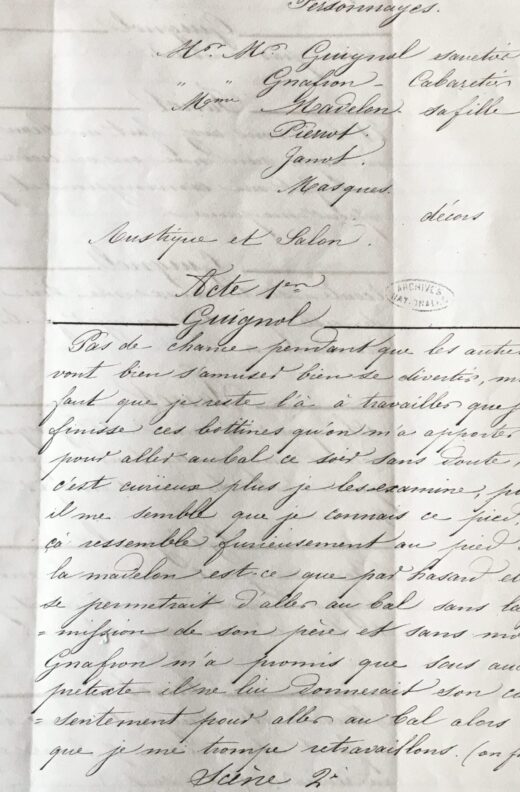 Personnages.
Mr. Mr. Guignol savetier
" " Gnafron - Cabaretier
Mme Madelon. sa fille
Pierrot.
Janot.
Masques.
décors
Rustique et Salon.
Acte 1er
ARCHIVES
NATIONALES
Guignol
Pas de chance pendant que les autres
vont bien s'amuser bien se divertir,
faut que je reste l'à à travailler que j
finisse ces bottines qu'on m'a apporter
pour aller au bal ce soir sans doute,
c'est curieux plus je les examine,
il me semble que je connais ce pied,
çà ressemble furieusement au pied
la madelon est-ce que par hasard
se permettrait d'aller au bal sans la
=mission de son père et sans mo
Gnafron m'a promis que sous auc
prétexte il ne lui donnerait son co
=sentement pour aller au bal alors
que je me trompe retravaillons. (on f
Scène 2e